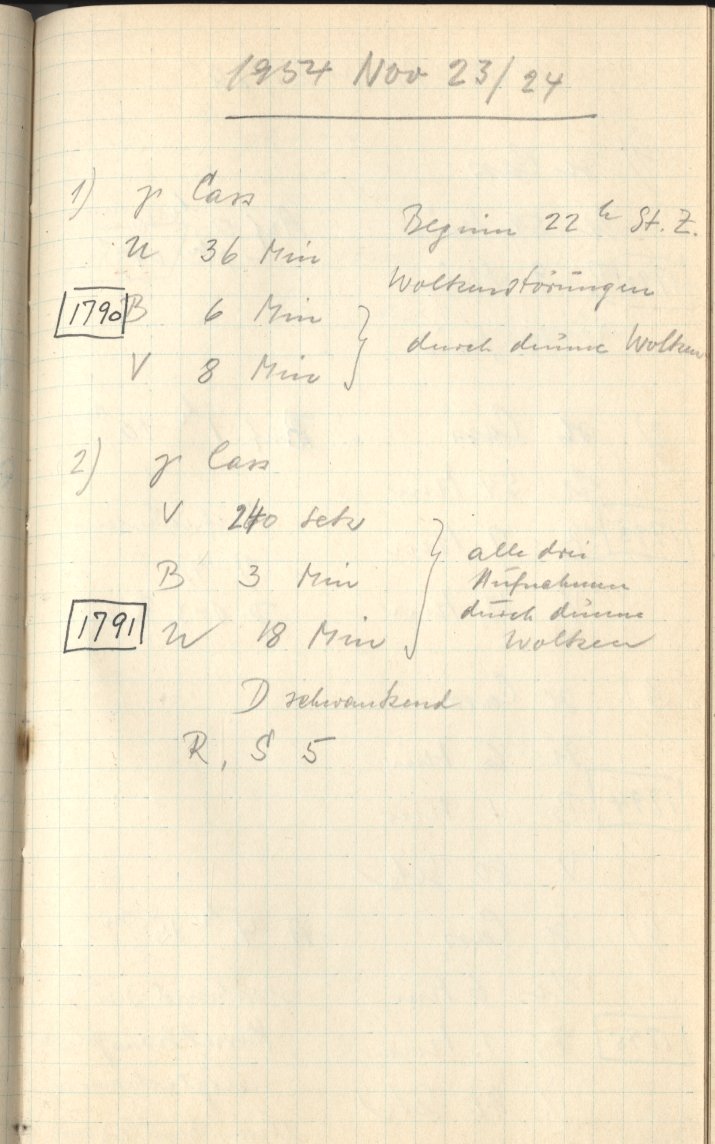 1954 Nov 23/24
1) γ Cass
U 36 Min
Beginn 22 h St. Z.
Wolkenstörungen
1790 B 6 Min
V 8 Min
durch dünne Wolken
2) γ Cass
V 240 sek
B 3 Min
1791 U 18 Min
alle drei
Aufnahmen
durch dünne
Wolken
D schwankend
R, S 5